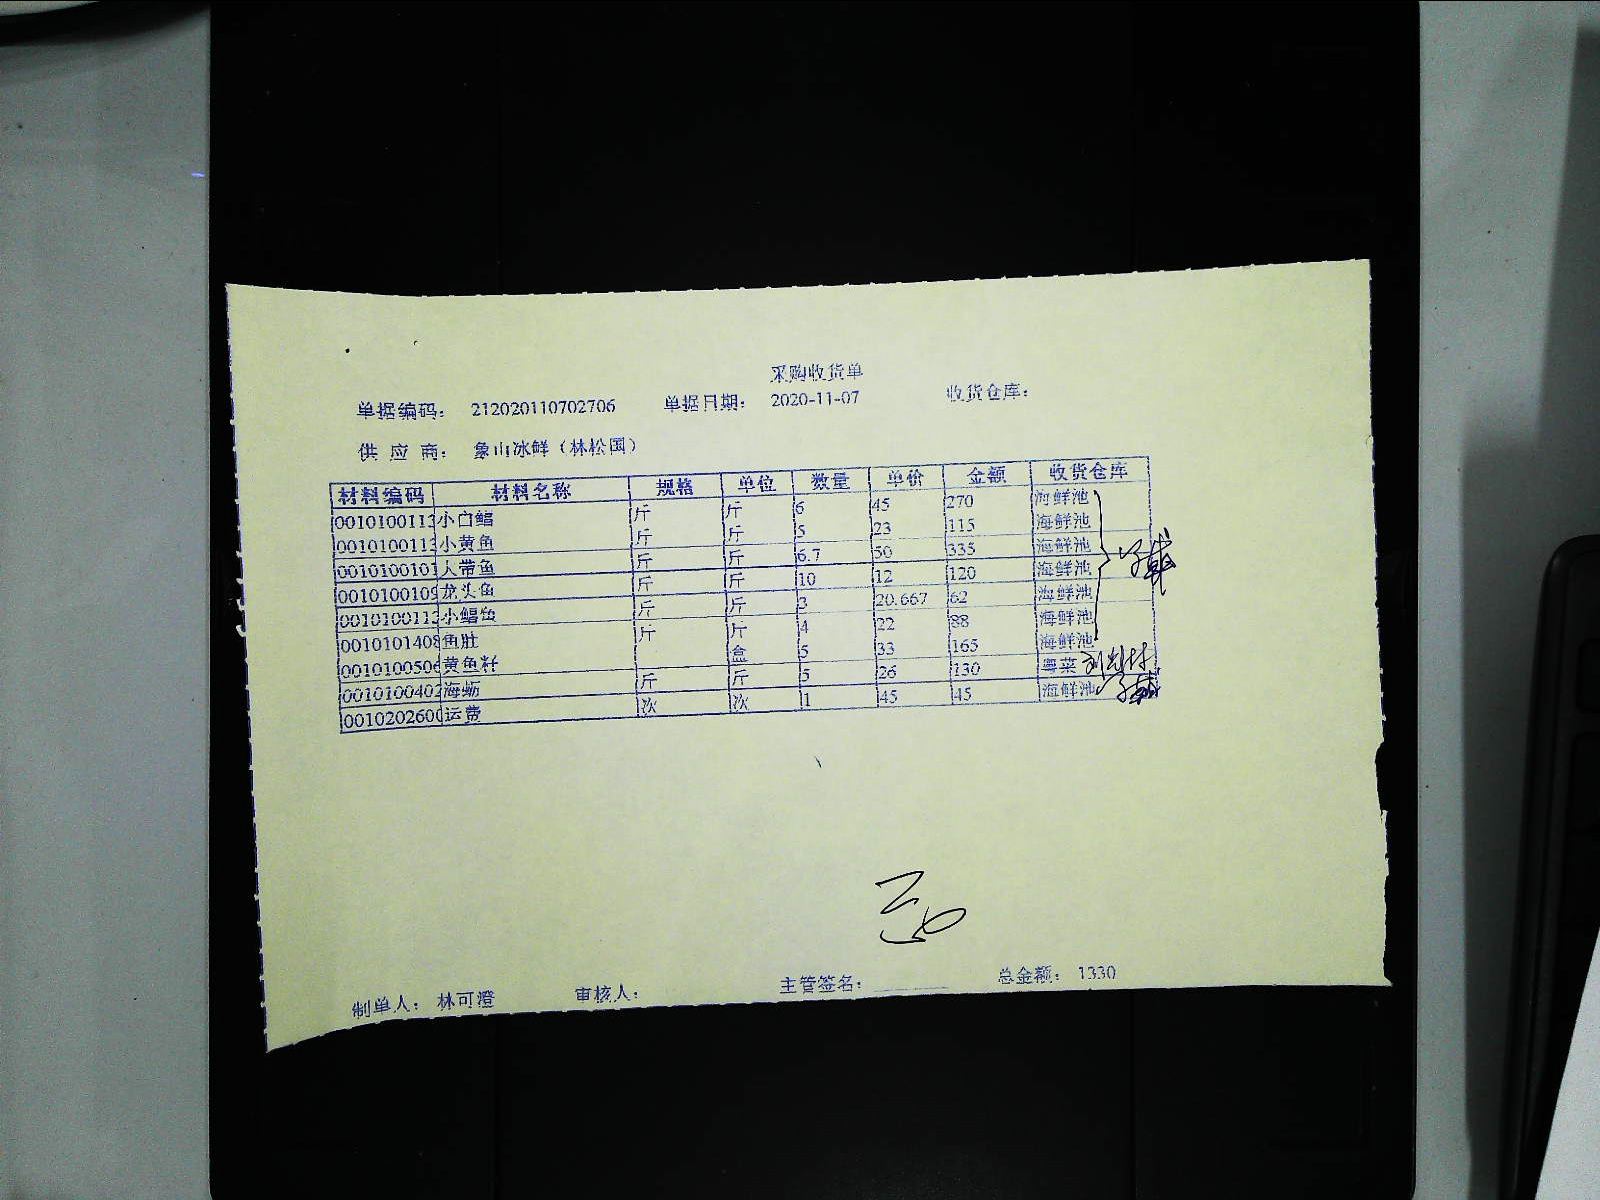 采购收货单
单据编码： 212020110702706 单据日期： 2020-11-07 收货仓库：
供 应 商： 象山冰鲜（林松国）
材料编码 材料名称 规格 单位 数量 单价 金额 收货仓库
0010100113 小白鲳 斤 斤 6 45 270 海鲜池
0010100113 小黄鱼 斤 斤 5 23 115 海鲜池
0010100101 人带鱼 斤 斤 6.7 50 335 海鲜池
0010100109 龙头鱼 斤 斤 10 12 120 海鲜池
0010100112 小鲳鱼 斤 斤 3 20.667 62 海鲜池
0010101408 鱼肚 斤 斤 4 22 88 海鲜池
0010100506 黄鱼籽 盒 5 33 165 海鲜池
0010100402 海蛎 斤 斤 5 26 130 粤菜
0010202600 运费 次 次 1 45 45 海鲜池
制单人： 林可澄 审核人： 主管签名： 总金额： 1330